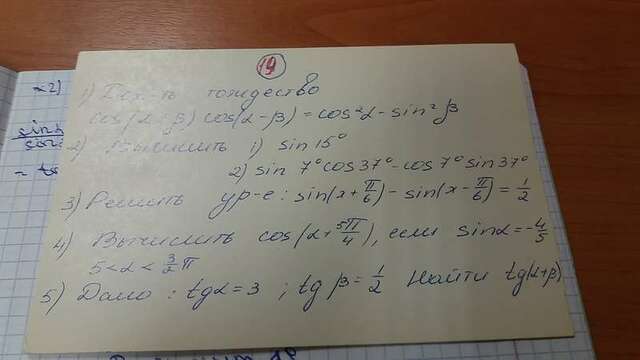 19
1) Док-ть тождество
cos(α+β)cos(α-β)=cos²α-sin²β
2) Вычислить 1) sin 15°
2) sin 7°cos37°-cos7°sin37°
3) Решить ур-е: sin(x+π/6)-sin(x-π/6)=1/2
4) Вычислить cos(α+5π/4), если sinα=-4/5
5<α<3/2π
5) Дано: tgα=3; tgβ=1/2 Найти tg(α+β)